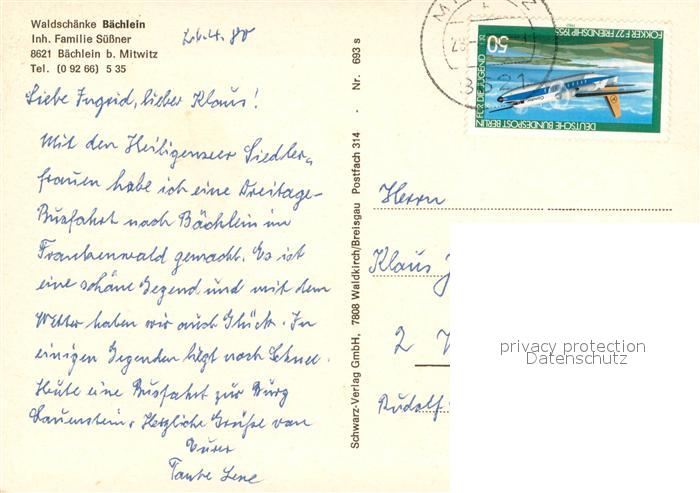 Waldschänke Bächlein
Inh. Familie Süßner
8621 Bächlein b. Mitwitz
Tel. (0 92 66) 5 35
26.4.80
Liebe Ingrid, lieber Klaus!
Mit den Heiligenseer Siedler„
frauen habe ich eine Dreitage-
Busfahrt nach Bächlein im
Frankenwald gemacht. Es ist
eine schöne Gegend und mit dem
Wetter haben wir auch Glück. In
einigen Gegenden liegt noch Schnee.
Heute eine Busfahrt zur Burg
Lauenstein. Herzliche Grüße von
Eurer
Tante Lene
Schwarz-Verlag GmbH, 7808 Waldkirch/Breisgau Postfach 314 · Nr. 693 s
50
FÜR DIE JUGEND
FOKKER F 27 FRIENDSHIP 1955
DEUTSCHE BUNDESPOST BERLIN
8621
Herrn
Klaus
2
Rudolf
privacy protection
Datenschutz